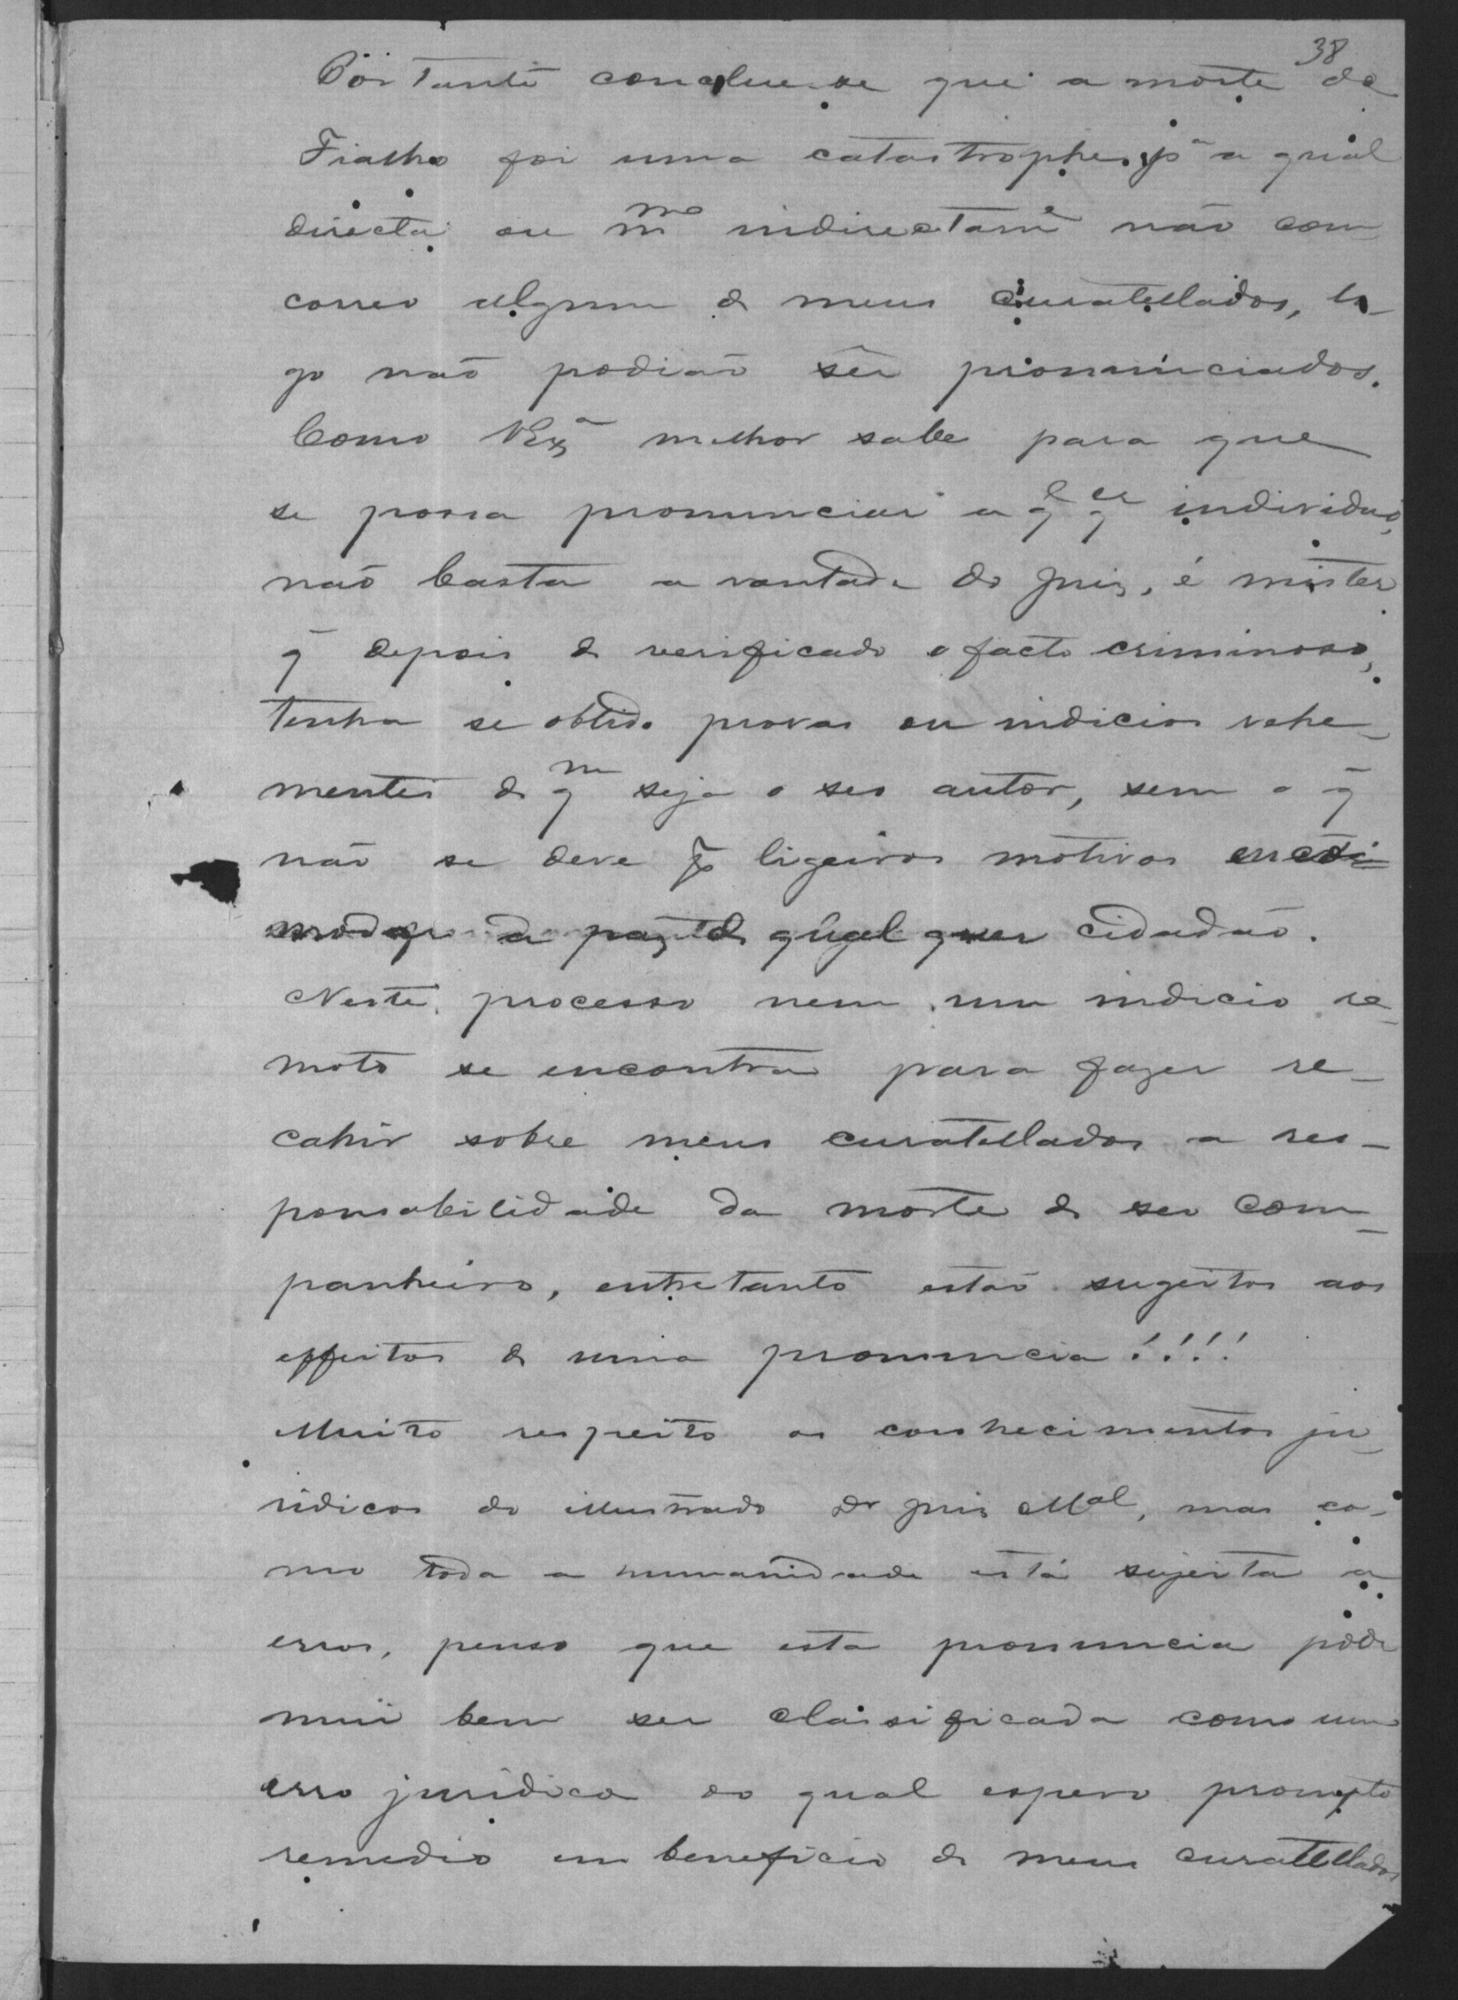 38
Por tanto conclue-se que a morte de
Fialho foi uma catastrophe, pª a qual
directa ou mmo indirectame não con-
correo algum de meus curatellados, lo-
go não podião ser pronunciados.
Como VExª melhor sabe para que
se possa pronunciar a qlqer individuo,
não basta a vontade do juiz, é mister
q̃ depois de verificado o facto criminoso,
tenha se obtido provas ou indicios vehe-
mentes de qm seja o seo autor, sem o q̃
não se deve por ligeiros motivos incom-
modar a paz de qual quer cidadão.
Neste processo nem um indicio re-
moto se encontra para fazer re-
cahir sobre meus curatellados a res-
ponsabilidade da morte de seu com-
panheiro, entretanto estão sugeitos aos
effeitos de uma pronuncia!!!!
Muito respeito os conhecimentos ju-
ridicos do illustrado Dr juiz Mal, mas co-
mo toda a humanidade está sujeita a
erros, penso que esta pronuncia póde
mui bem ser classificada como um
erro juridico do qual espero prompto
remedio em beneficio de meus curatellados